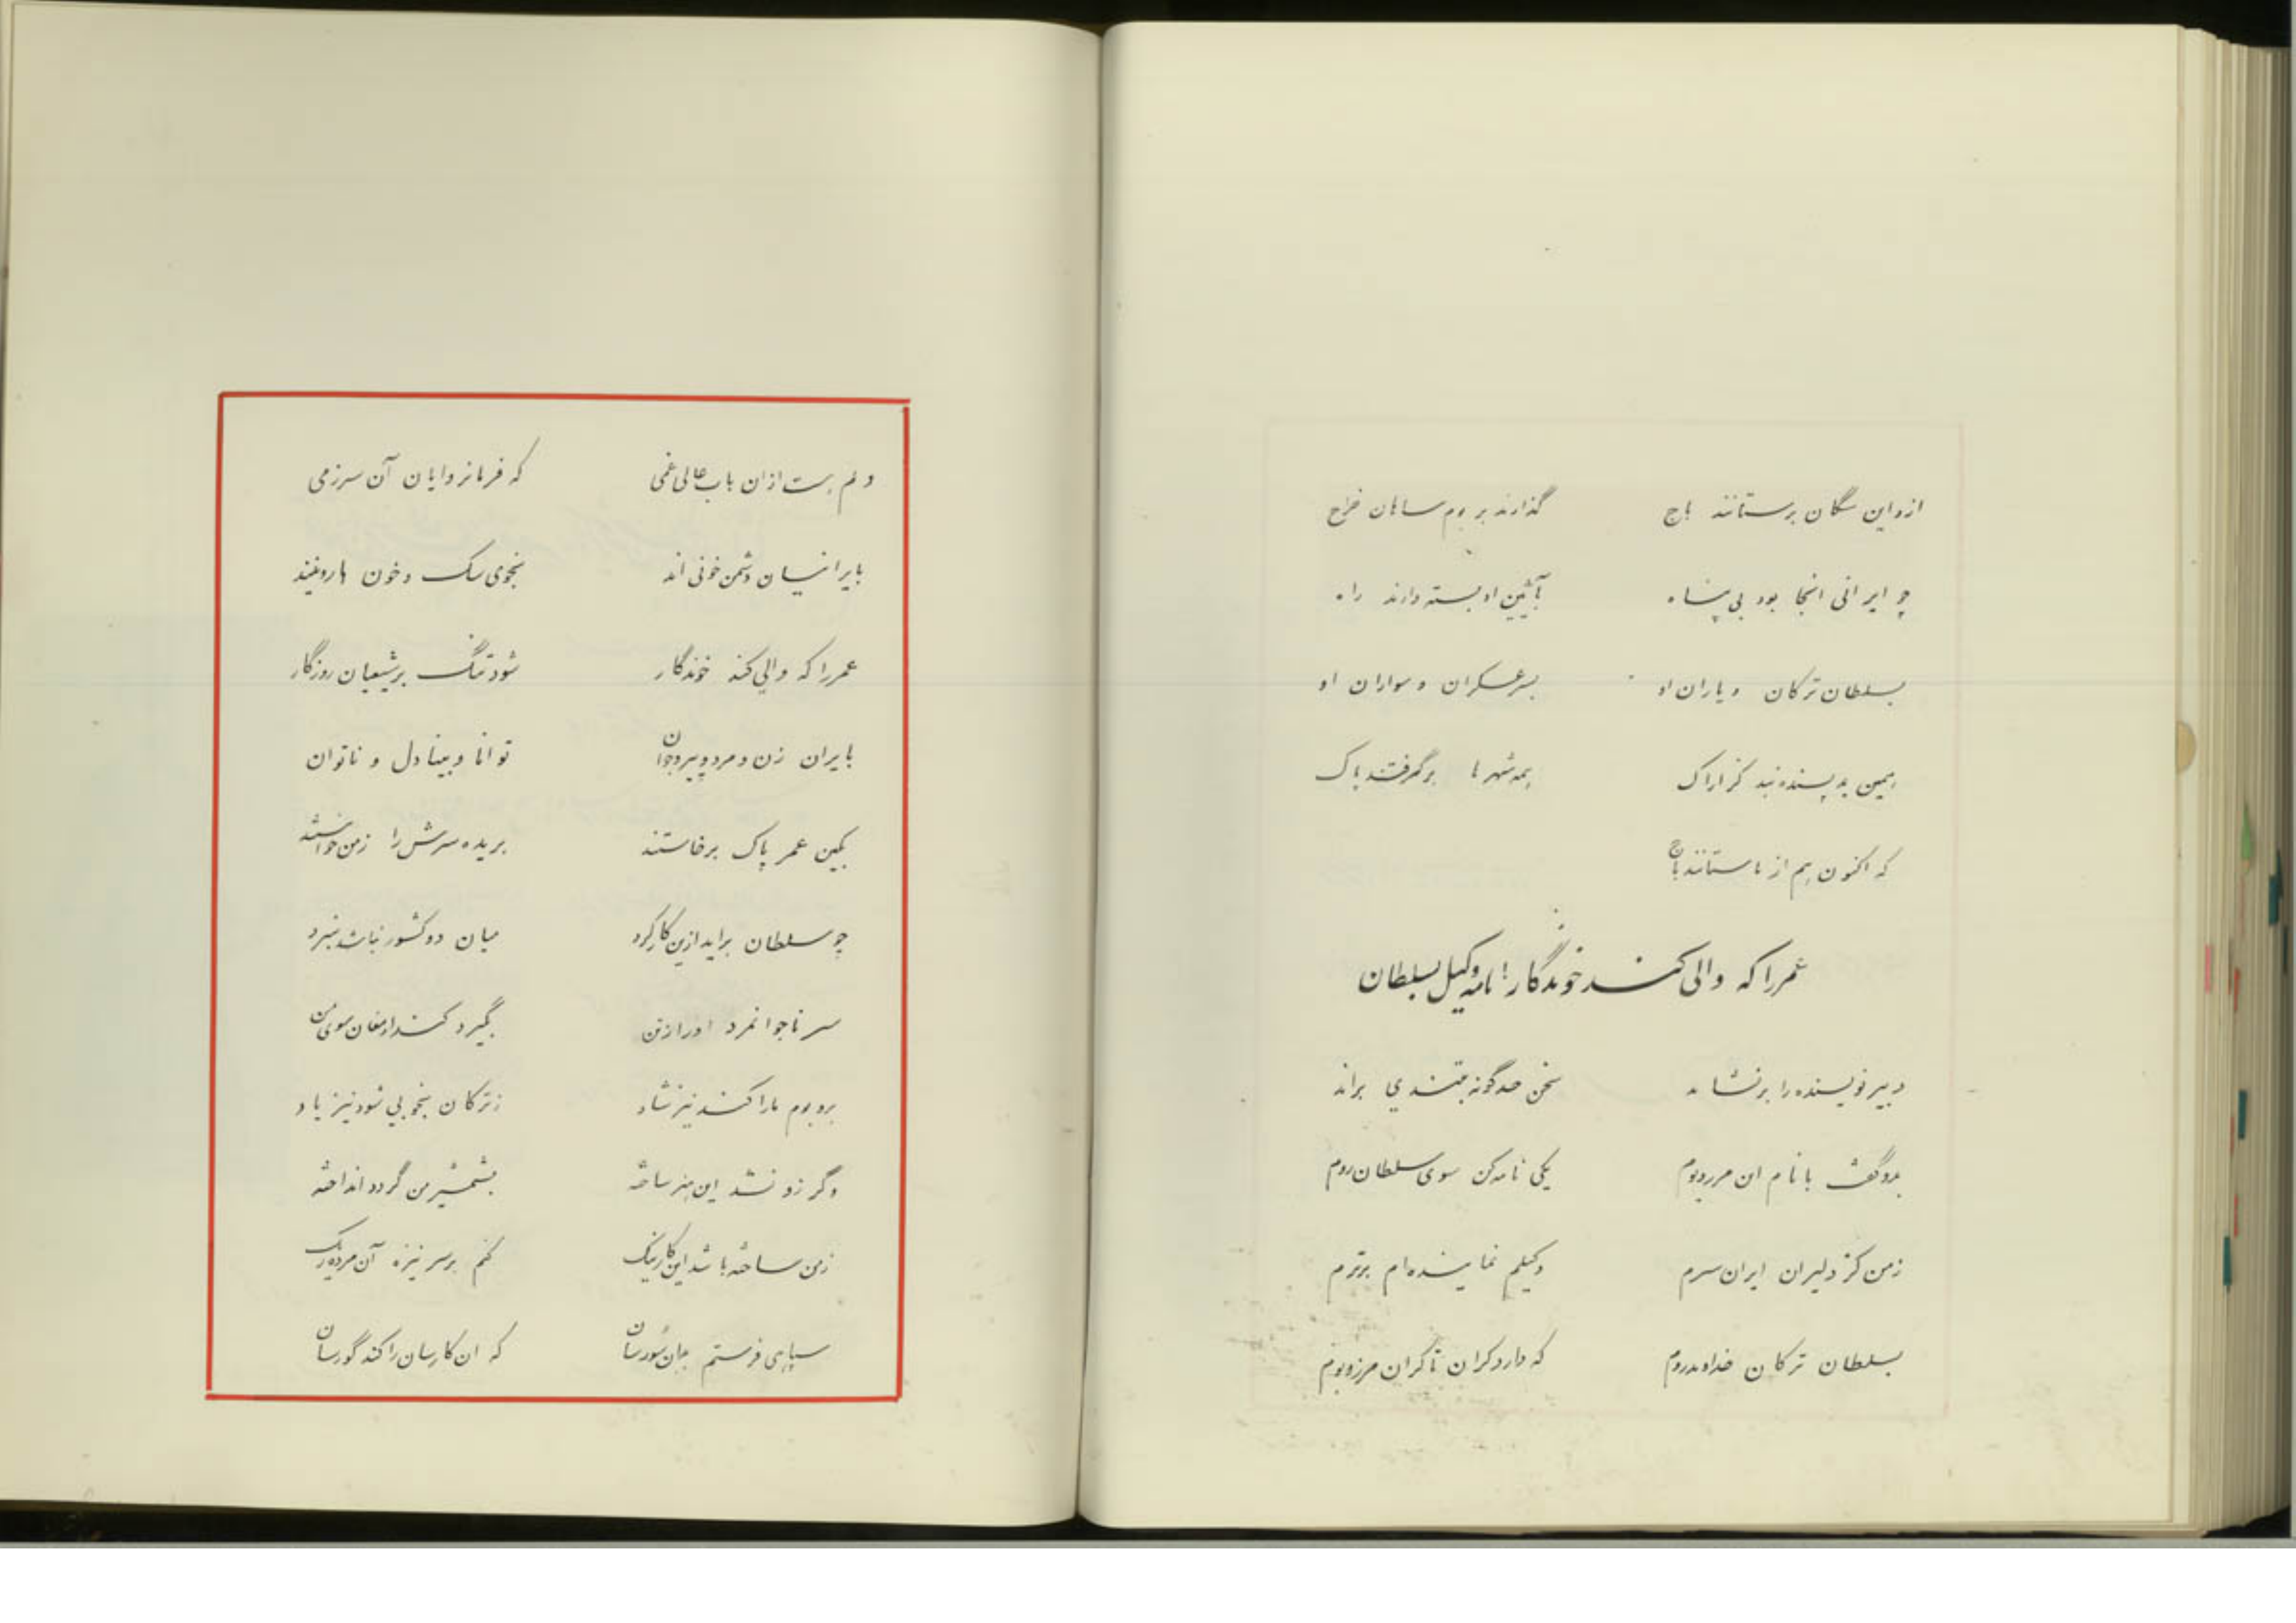 ازو این سگان برستانند باج گذارند بر بوم ساهان خراج
چو ایرانی انجا بود بی پناه بآئین او بسته دارند راه
بسلطان ترکان و یاران او بسرعسکران و سواران او
همین به پسنده نبد کز اراک همه شهرها برگرفتند پاک
که اکنون هم از ما ستانند باج
عمر را که والی کند خوندگار! نامه وکیل بسلطان
دبیر نویسنده را برنشاند سخن صدگونه بتندی براند
بدو گفت با نام ان مرز و بوم یکی نامه کن سوی سلطان روم
زمن کز دلیران ایران سرم وکیلم نماینده ام برترم
بسلطان ترکان خداوند روم که دارد کران تا کران مرز و بوم
دلم است ازان باب عالی غمی که فرمانروایان آن سرزمی
بایرانیان دشمن خونی اند بخوی سگ و خون
عمر را که والی کند خوندگار شود تنگ بر شیعیان روزگار
بایران زن و مرد و پیر و جوان توانا و بینا دل و ناتوان
بکین عمر پاک برخاستند بریده سرش را زمن خواستند
چو سلطان براید ازین کار گرد میان دو کشور نباشد نبرد
سر ناجوانمرد اورا زتن بگیرد کند ارمغان سوی من
بر و بوم مارا کند نیز شاد زترکان بخوبی شود نیز یاد
وگر زو نشد این هنر ساخته بشمشیر من گردد انداخته
زمن ساخته باشد این کار نیک کنم بر سر نیزه آن مرده ریک
سپاهی فرستم بدان سورسان که ان کارسان را کند گورسان